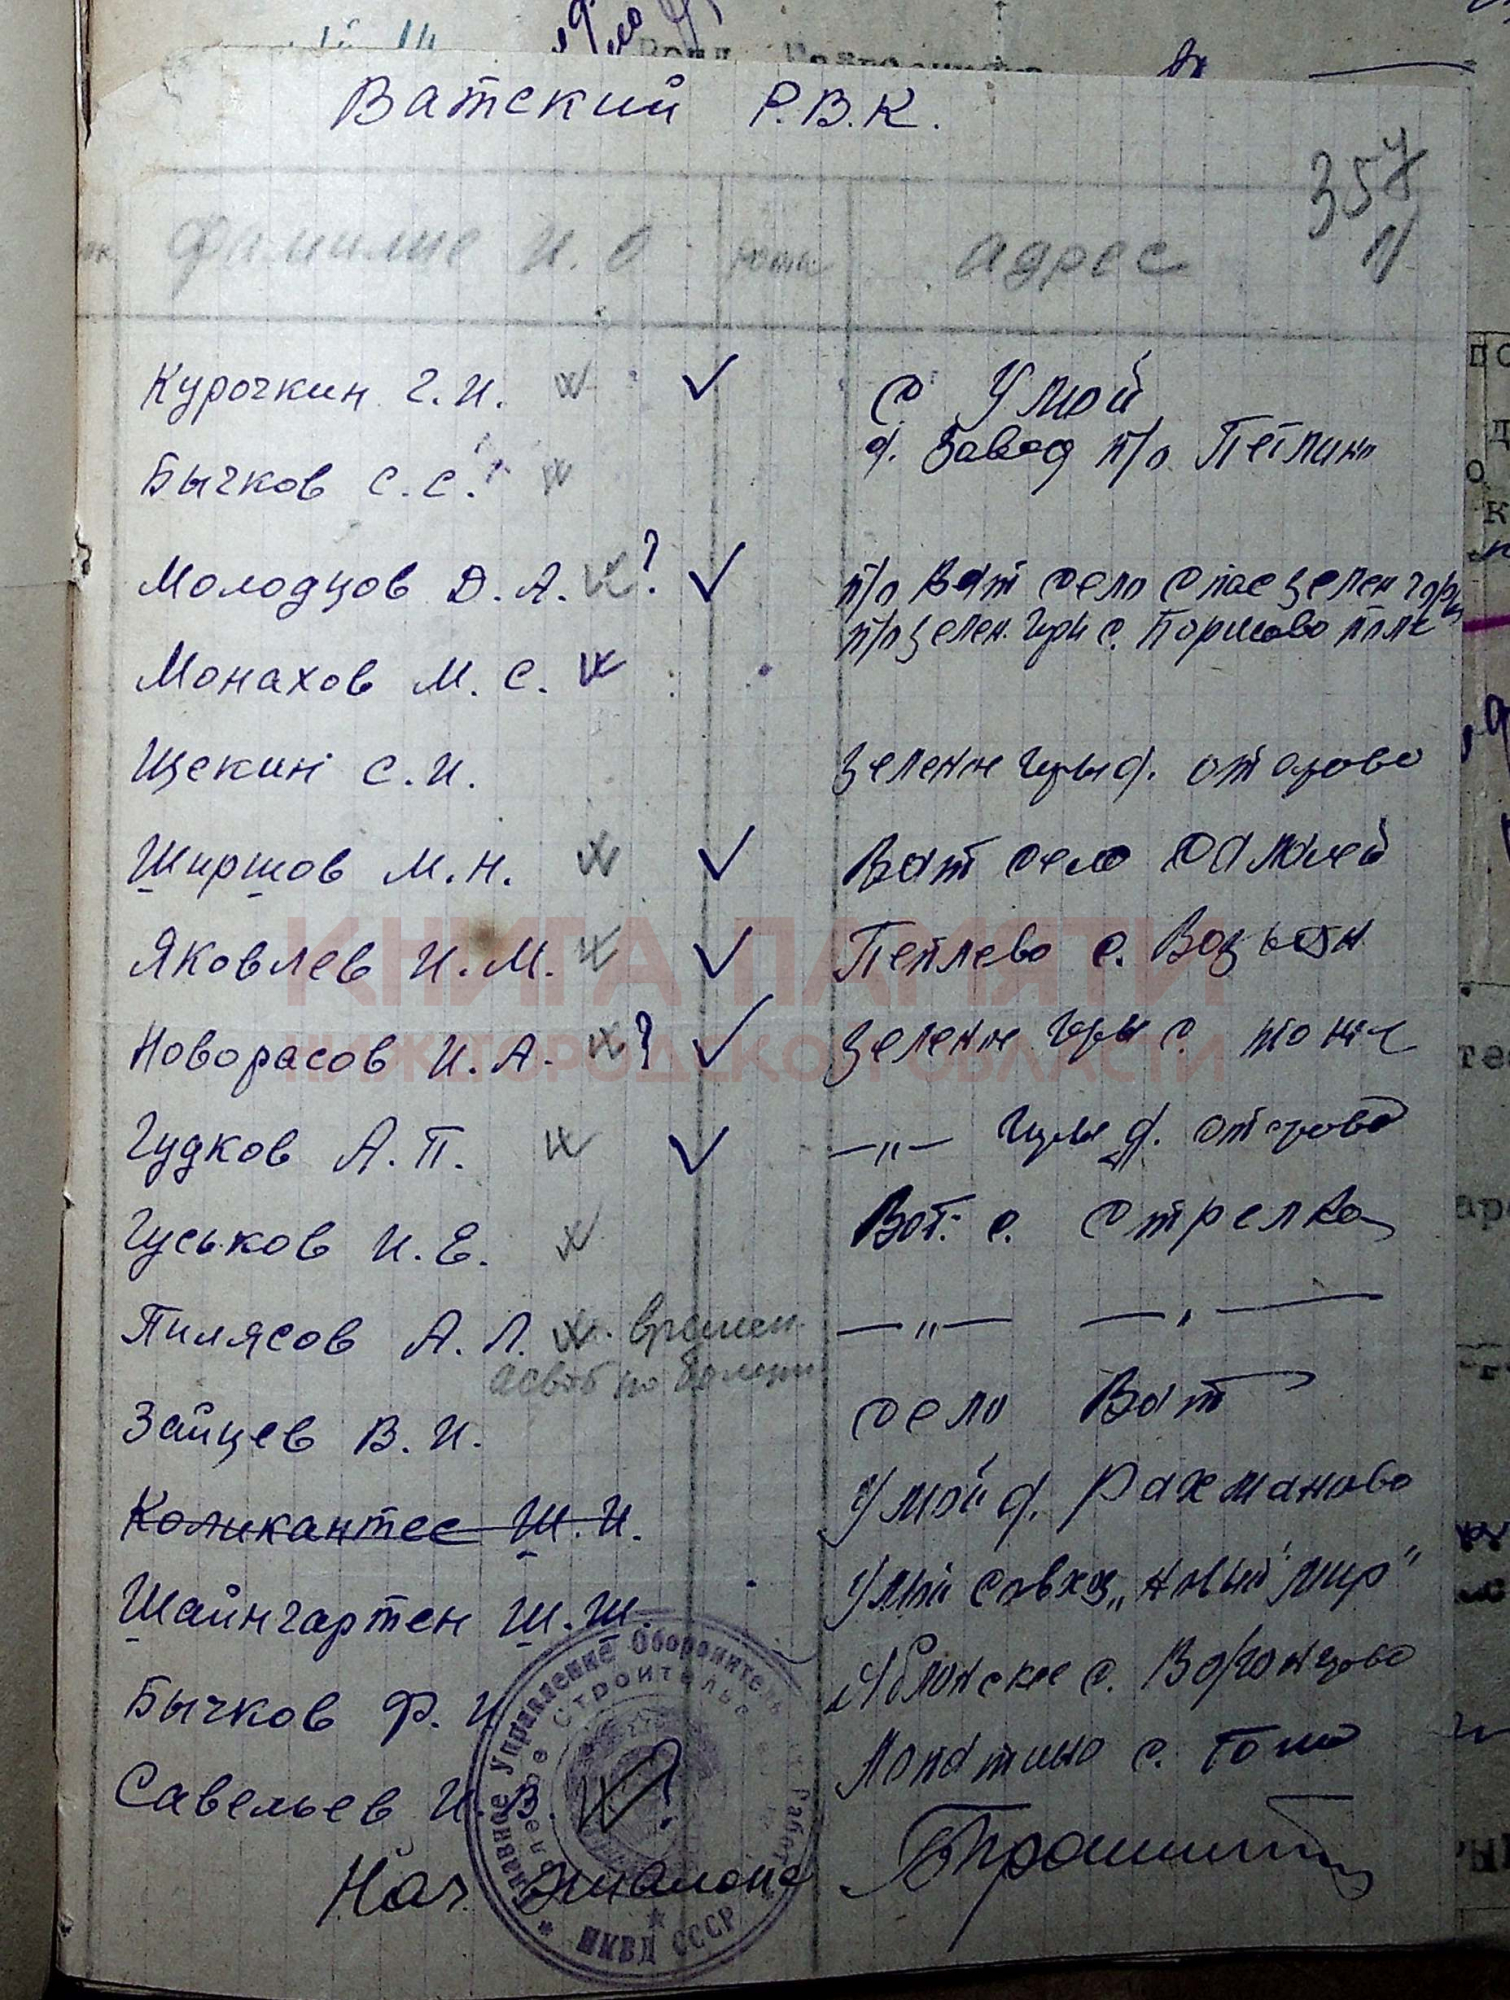 Ватский Р.В.К.
357
фамилие И.О адрес
Курочкин Г.И. с Умой
Бычков С.С. д. Завод п/о Петлино
Молодцов Д.А. ? п/о Ват село Спас зелен горы
Монахов М.С. п/о зелен. горы с.
Щекин С.И. зелен горы д.
Ширшов М.Н. Ват село
Яковлев И.М. с.
КНИГА ПАМЯТИ
Новорасов И.А. ? зелен горы с.
НИЖГОРОДСКОЙ ОБЛАСТИ
Гудков А.П. —„— горы д.
Гуськов И.Е. Ват. с. Стрелка
Пилясов А.Л. времен. —„— —„—
освоб по болезни
Зайцев В.И. село Ват
Коликантес Ш.И. Умой д. Рахманово
Шайнгартен Ш.Ш. Умой совхз „новый мир"
Бычков Ф.И. Яблонское с. Воронцово
Савельев И.В. ? Лопатино с.
Нач эшалона
Главное Управление Оборонительн Работ
Полевое Строительс
НКВД СССР